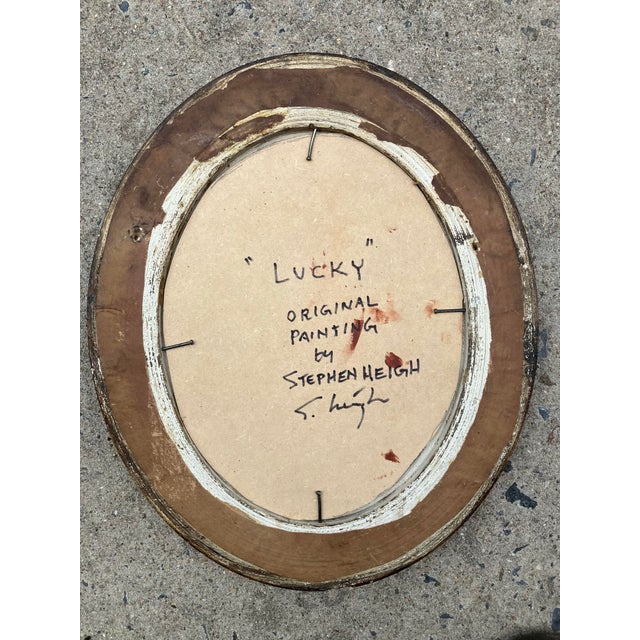 "LUCKY"
ORIGINAL
PAINTING
by
STEPHEN HEIGH
S. Heigh